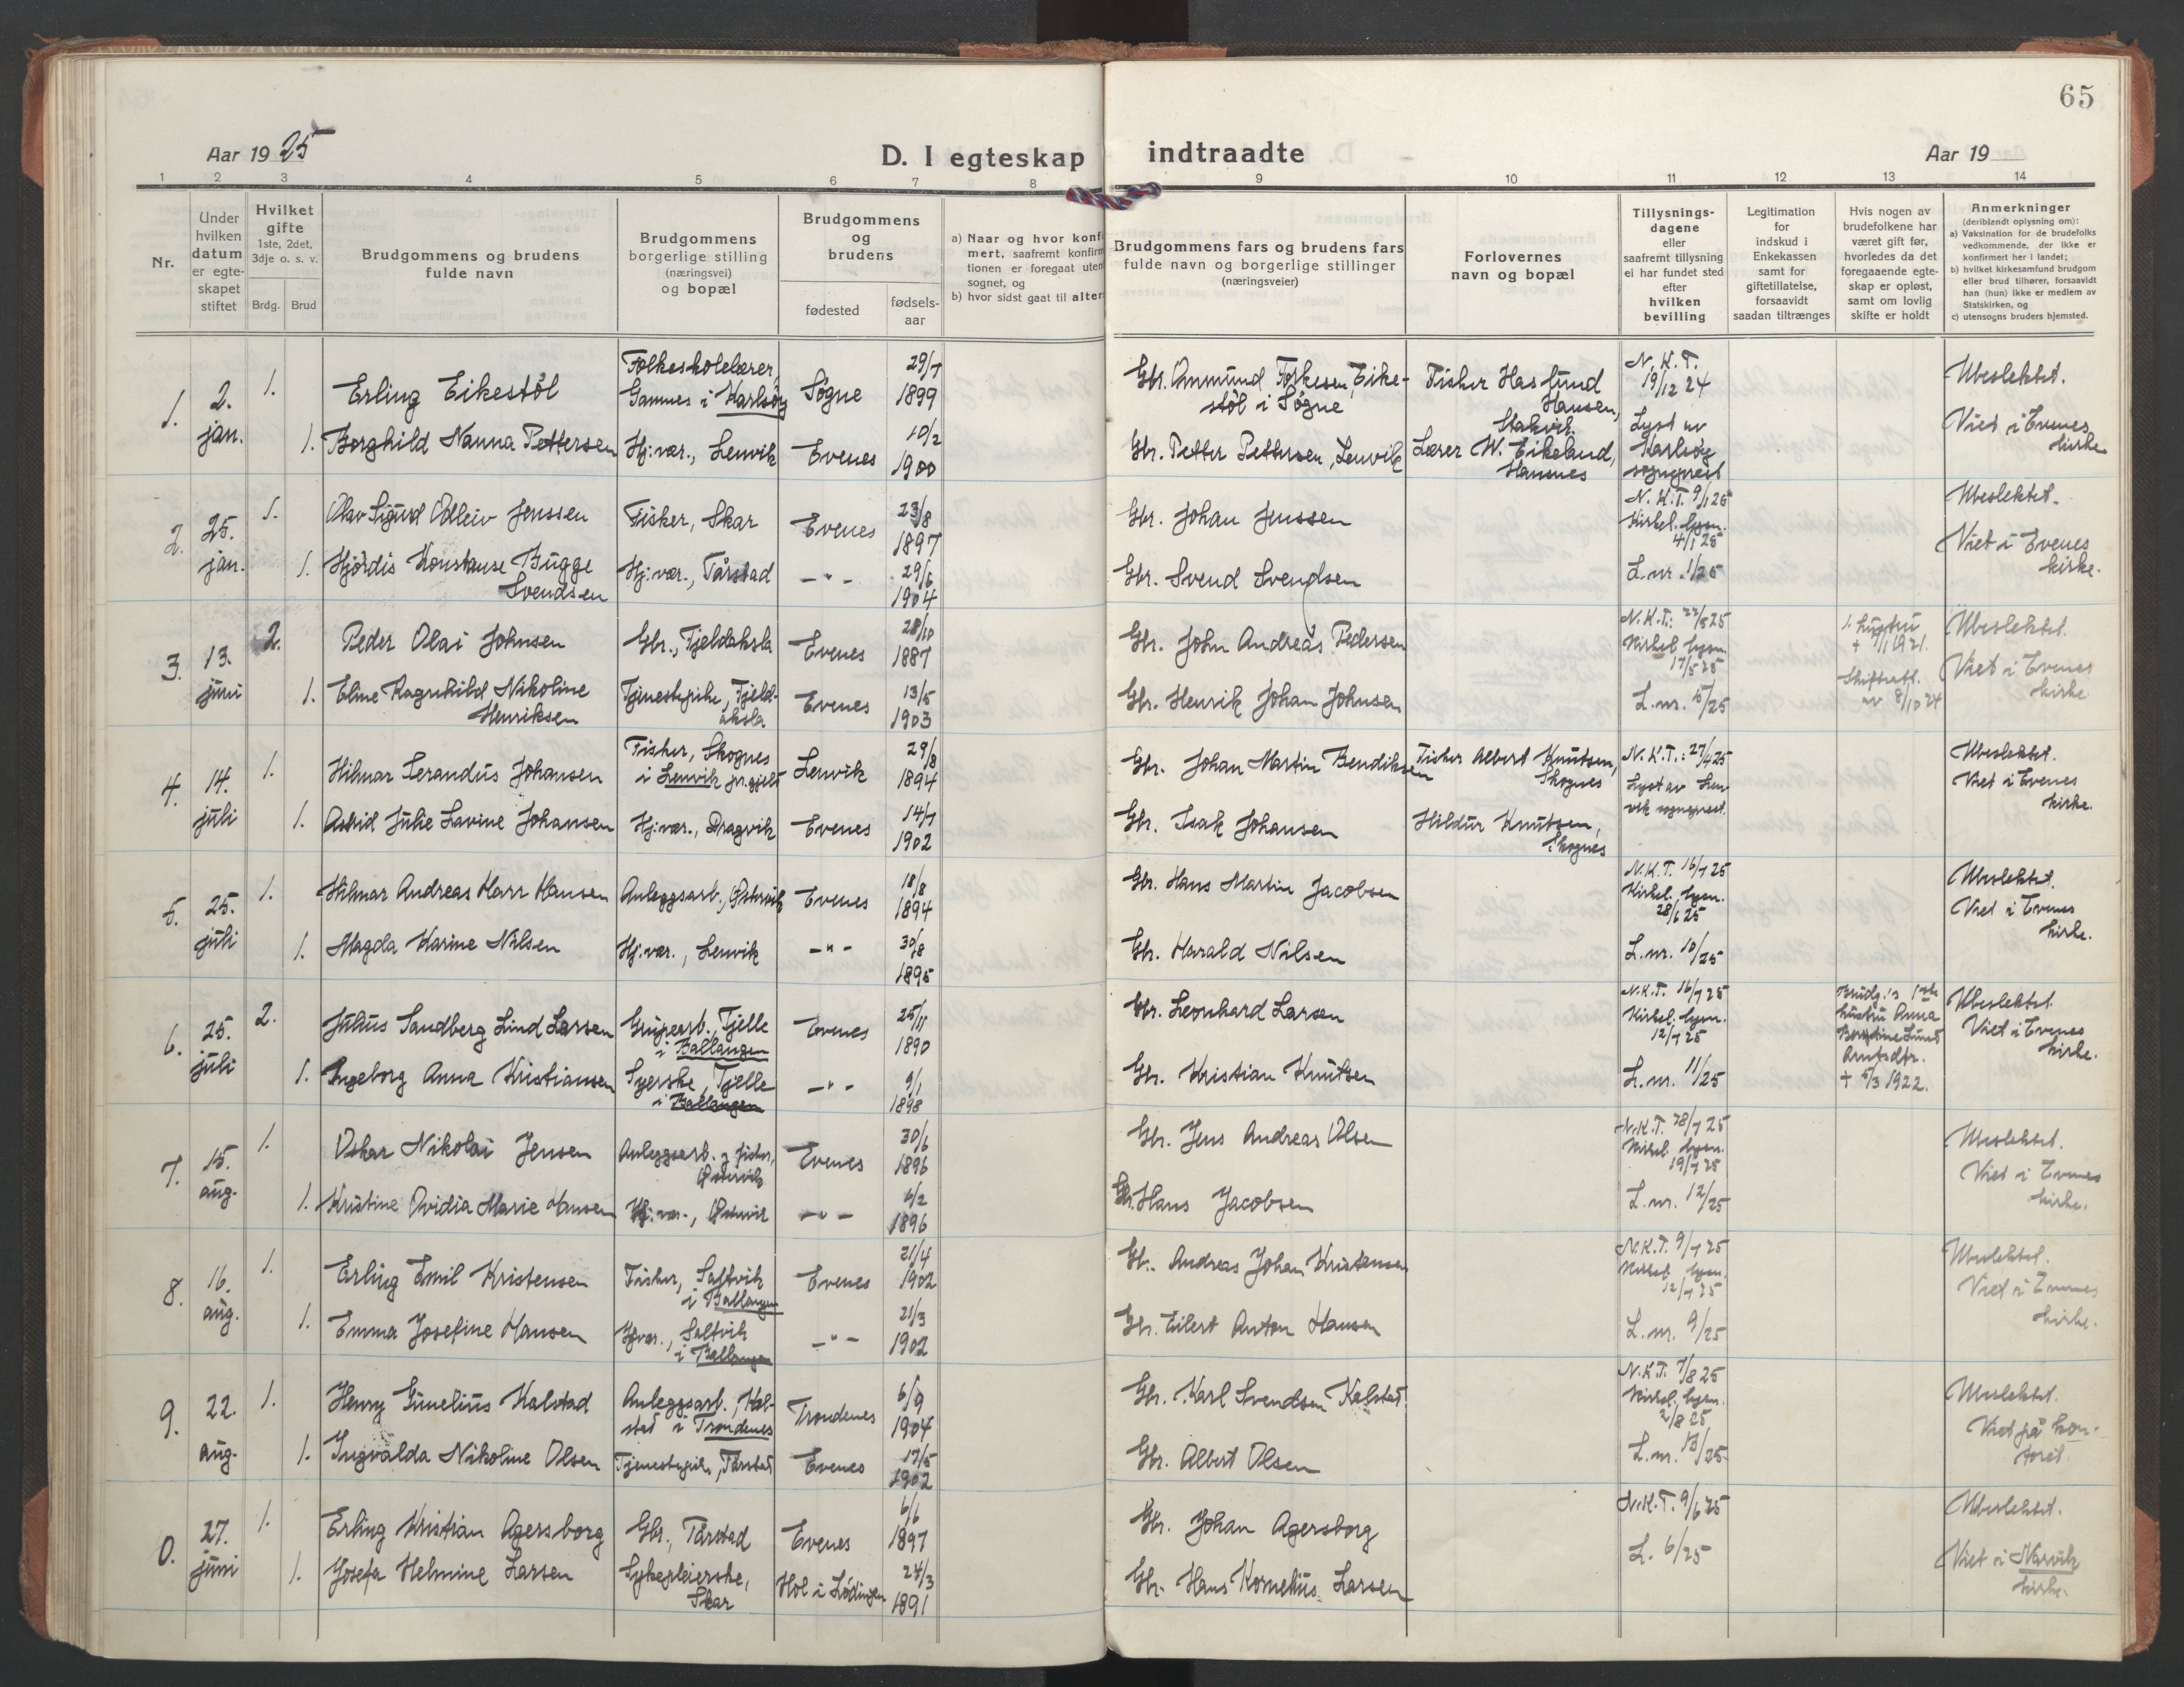 65
Aar 1925
D. I egteskap indtraadte
Aar 19
1 2 3 4 5 6 7 8 9 10 11 12 13 14
Nr.
Under hvilken datum er egteskapet stiftet
Hvilket gifte 1ste, 2det, 3dje o. s. v.
Brdg. Brud
Brudgommens og brudens fulde navn
Brudgommens borgerlige stilling (næringsvei) og bopæl
Brudgommens og brudens
fødested
fødselsaar
a) Naar og hvor konf
mert, saafremt konfirm
tionen er foregaat uten
sognet, og
b) hvor sidst gaat til alter
Brudgommens fars og brudens fars fulde navn og borgerlige stillinger (næringsveier)
Forlovernes navn og bopæl
Tillysningsdagene eller saafremt tillysning ei har fundet sted efter hvilken bevilling
Legitimation for indskud i Enkekassen samt for giftetillatelse, forsaavidt saadan tiltrænges
Hvis nogen av brudefolkene har været gift før, hvorledes da det foregaaende egteskap er opløst, samt om lovlig skifte er holdt
Anmerkninger
(deriblandt oplysning om):
a) Vaksination for de brudefolks vedkommende, der ikke er konfirmert her i landet;
b) hvilket kirkesamfund brudgom eller brud tilhører, forsaavidt han (hun) ikke er medlem av Statskirken, og
c) utensogns bruders hjemsted.
1. 2. jan. 1. Erling Eikestöl
Folkeskolelærer, Gamnes i Karlsöy
Søgne 29/7 1899
Gbr. Anmund Torkesen Eikestöl i Søgne
Fisker Haslund Hansen, Stakvik
N.K.T. 19/12 24
Ubeslektet.
1. Borghild Nanna Pettersen
Hj:vær., Lenvik
Evenes 10/2 1900
Gbr. Petter Pettersen, Lenvik
Lærer W. Eikeland, Hannes
Lyst av Karlsöy sogneprest
Viet i Evenes kirke
2. 25. jan. 1. Olav Sigurd Odleiv Jenssen
Fisker, Skar
Evenes 23/8 1897
Gbr. Johan Jenssen
N.K.T. 9/1 25
Kirkel. lysn. 4/1 25
Ubeslektet.
1. Hjördis Konstanse Bugge Svendsen
Hj:vær., Tårstad
-"- 29/6 1904
Gbr. Svend Svendsen
L.nr. 1/25
Viet i Evenes kirke.
3. 13. juni 2. Peder Olai Johnsen
Gbr., Fjeldaksla
Evenes 28/10 1887
Gbr. John Andreas Pedersen
N.K.T.: 22/5 25
Kirkel. lysn. 17/5 25
1. hustru + 7/1 1921.
Ubeslektet.
1. Eline Ragnhild Nikoline Henriksen
Tjenestepike, Fjeldaksla
Evenes 13/5 1903
Gbr. Henrik Johan Johnsen
L.nr. 5/25
Skifteatt. av 8/10 24
Viet i Evenes kirke
4. 14. juli 1. Hilmar Serandus Johansen
Fisker, Skognes i Lenvik pr.gjeld
Lenvik 29/8 1894
Gbr. Johan Martin Bendiksen
Fisker Albert Knutsen, Skognes
N.K.T.: 27/4 25
Ubeslektet.
1. Astrid Julie Lavine Johansen
Hj:vær., Dragvik
Evenes 14/7 1902
Gbr. Isak Johansen
Hildur Knutsen, Skognes
Lyst av Lenvik sogneprest.
Viet i Evenes kirke.
5. 25. juli 1. Hilmar Andreas Harr Hansen
Anleggsarb., Østervik
Evenes 18/8 1894
Gbr. Hans Martin Jacobsen
N.K.T. 16/7 25
Kirkel. lysn. 28/6 25
Ubeslektet.
1. Magda Karine Nilsen
Hj:vær., Lenvik
-"- 30/8 1895
Gbr. Harald Nilsen
L.nr. 10/25
Viet i Evenes kirke.
6. 25. juli 2. Julius Sandberg Lind Larsen
Grubearb., Fjelle i Ballangen
Evenes 25/11 1890
Gbr. Leonhard Larsen
N.K.T. 16/7 25
Kirkel. lysn. 12/7 25
Brudg.'s 1ste hustru Anna Arntsdtr. + 5/3 1922.
Ubeslektet.
1. Ingeborg Anna Kristiansen
Syerske, Fjelle i Ballangen
-"- 9/1 1898
Gbr. Kristian Knutsen
L.nr. 11/25
Viet i Evenes kirke.
7. 15. aug. 1. Oskar Nikolai Jensen
Anleggsarb. og fisker, Østervik
Evenes 30/6 1896
Gbr. Jens Andreas Olsen
N.K.T. 28/7 25
Kirkel. lysn. 19/7 25
Ubeslektet.
1. Kristine Ovidia Marie Hansen
Hj:vær., Østervik
-"- 6/2 1896
Gbr. Hans Jacobsen
L.nr. 12/25
Viet i Evenes kirke.
8. 16. aug. 1. Erling Emil Kristensen
Fisker, Saltvik i Ballangen
Evenes 21/4 1902
Gbr. Andreas Johan Kristensen
N.K.T. 9/7 25
Kirkel. lysn. 12/7 25
Ubeslektet.
1. Emma Josefine Hansen
Hj.vær., Saltvik i Ballangen
-"- 21/3 1902
Gbr. Eilert Anton Hansen
L.nr. 9/25
Viet i Evenes kirke.
9. 22. aug. 1. Henry Gunelius Kalstad
Anleggsarb., Kalstad i Trondenes
Trondenes 6/9 1904
Gbr. Karl Svendsen Kalstad
N.K.T. 7/8 25
Kirkel. lysn. 2/8 25
Ubeslektet.
1. Ingvalda Nikoline Olsen
Tjenestepike, Tårstad
Evenes 17/5 1902
Gbr. Albert Olsen
L.nr. 13/25
Viet på kontoret.
0. 27. juni 1. Erling Kristian Agersborg
Gbr., Tårstad
Evenes 6/6 1897
Gbr. Johan Agersborg
N.K.T. 9/6 25
Ubeslektet.
1. Josefa Helmine Larsen
Sykepleierske, Skar
Hol i Lödingen 24/3 1891
Gbr. Hans Kornelius Larsen
L. 6/25
Viet i Narvik kirke.